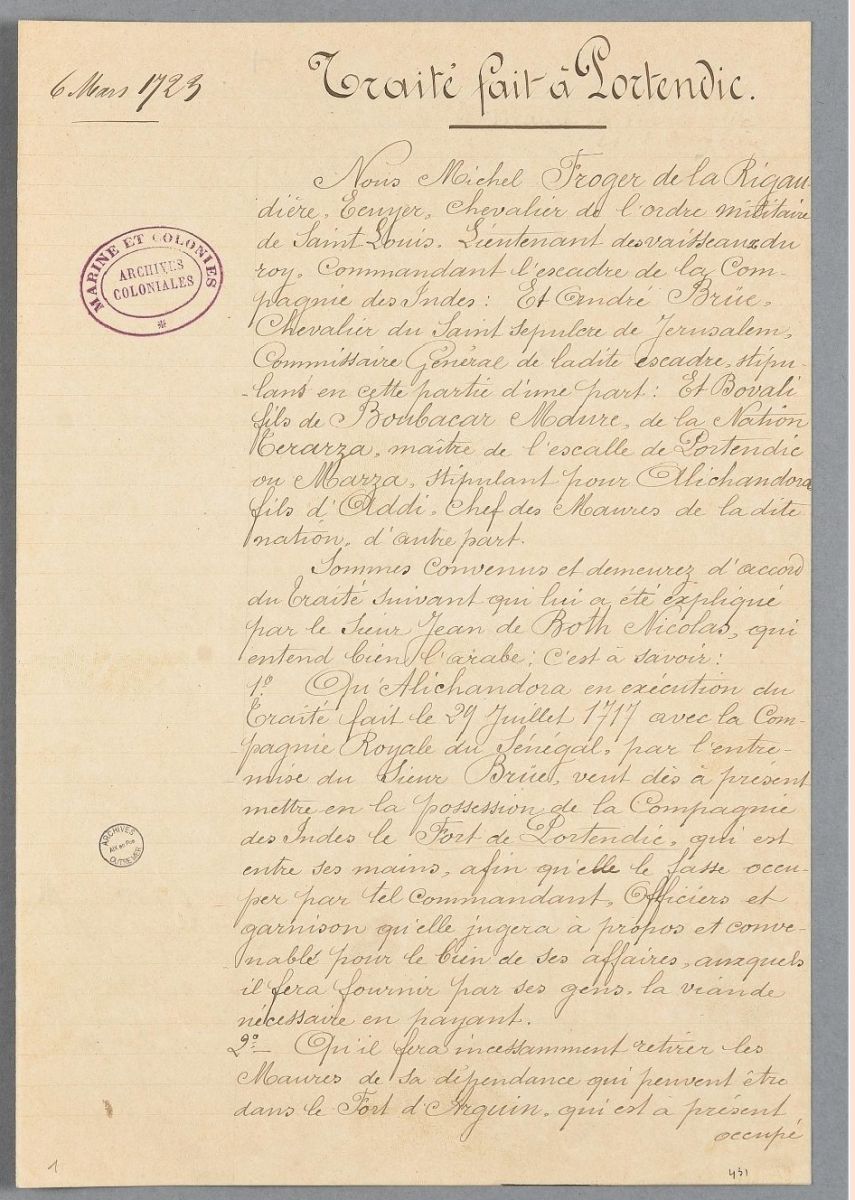 6 Mars 1723
Traité fait à Portendic.
MARINE ET COLONIES
ARCHIVES
COLONIALES
Nous Michel Froger de la Rigau-
dière, Ecuyer, Chevalier de l'ordre militaire
de Saint Louis, Lieutenant des vaisseaux du
roy, Commandant l'escadre de la Com-
pagnie des Indes: Et André Brüe,
Chevalier du Saint Sepulcre de Jerusalem,
Commissaire Général de ladite escadre, stipu-
-lans en cette partie d'une part: Et Bovali
fils de Boubacar Maure, de la Nation
Terarza, maître de l'escalle de Portendic
ou Marza, stipulant pour Alichandora
fils d'Addi, Chef des Maures de la dite
nation, d'autre part.
Sommes convenus et demeurez d'accord
du Traité suivant qui lui a été expliqué
par le Sieur Jean de Both Nicolas, qui
entend bien l'arabe; C'est à savoir:
1º Qu'Alichandora en exécution du
Traité fait le 29 Juillet 1717 avec la Com-
-pagnie Royale du Sénégal, par l'entre-
mise du Sieur Brüe, veut dès à présent
mettre en la possession de la Compagnie
des Indes le Fort de Portendic, qui est
entre ses mains, afin qu'elle le fasse occu-
per par tel Commandant, Officiers et
garnison qu'elle jugera à propos et conve-
nable pour le bien de ses affaires, auxquels
il fera fournir par ses gens, la viande
nécessaire en payant.
2º- Qu'il fera incessamment retirer les
Maures de sa dépendance qui peuvent être
dans le Fort d'Arguin, qui est à présent
occupé
ARCHIVES
OUTRE-MER
1
431